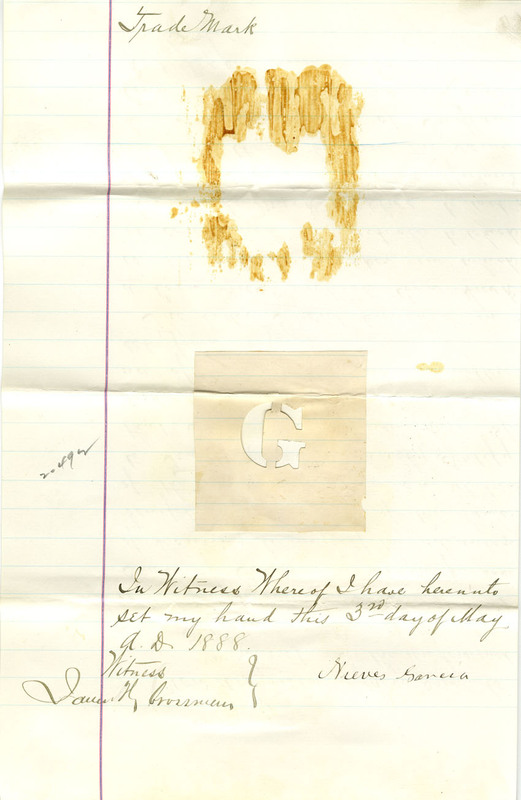 Trade Mark
G
In Witness Whereof I have hereunto
set my hand this 3rd day of May
A. D. 1888.
Witness
Nieves Garcia
Crossman